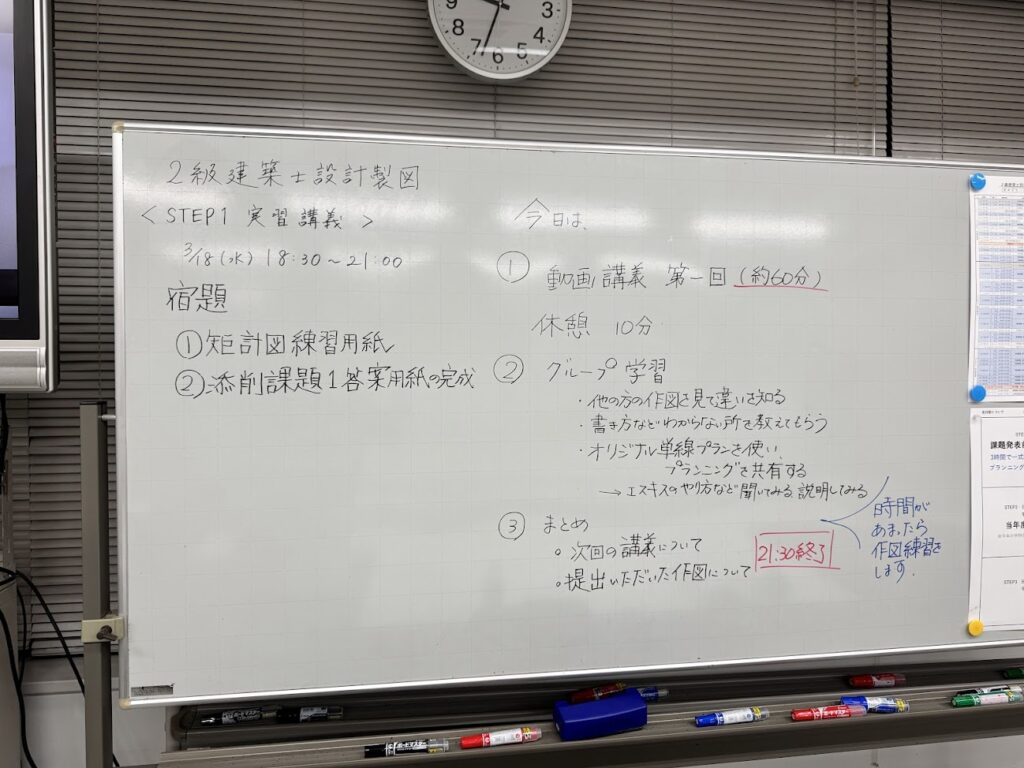 2級建築士設計製図
< STEP1 実習講義 >
3/18(水) 18:30～21:00
宿題
①矩計図練習用紙
②添削課題1答案用紙の完成
今日は、
① 動画講義 第一回 (約60分)
休憩 10分
② グループ学習
・他の方の作図を見て違いを知る
・書き方などわからない所を教えてもらう
・オリジナル単線プランを使い、
プランニングを共有する
→エスキスのやり方など聞いてみる、説明してみる
③ まとめ
○次回の講義について
○提出いただいた作図について
21:30終了
時間が
あまったら
作図練習を
します.
9
8
7
6
5
4
3
課題発表
3時間で一式
プランニング
当年